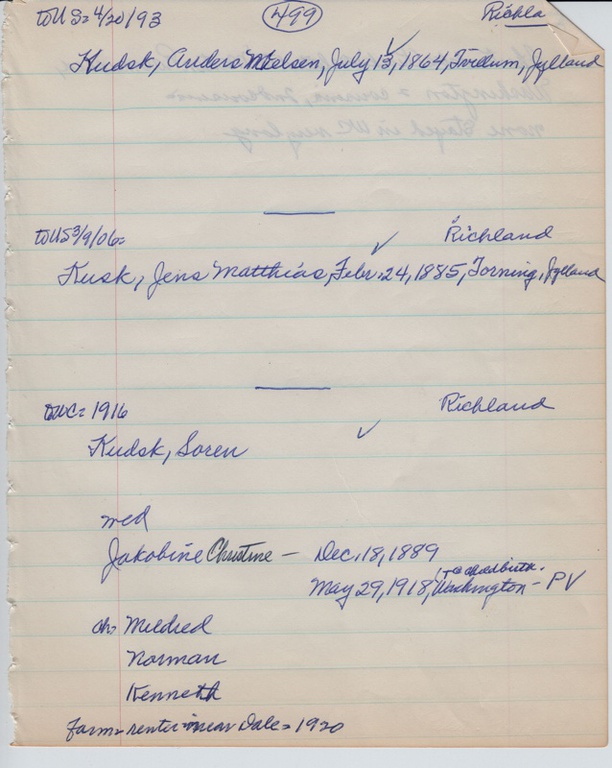 to US = 4/20/93 499 Richla
Kudsk, Anders Nielsen, July 13, 1864, Tvidum, Jylland
to US 3/9/06 = Richland
Kusk, Jens Matthias, Febr. 24, 1885, Torning, Jylland
to WC = 1916 Richland
Kudsk, Soren
med
Jakobine Christine - Dec. 18, 1889
childbirth.
May 29, 1918, Washington - PV
ch. Mildred
Norman
Kenneth
farm = renter = near Dale = 1920